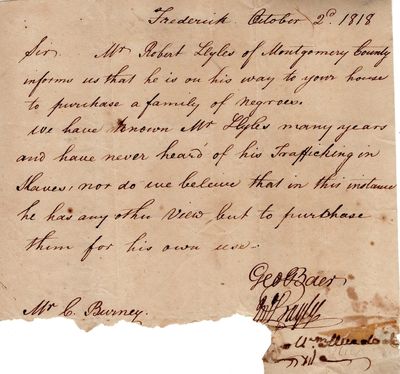 Frederick October 2d. 1818
Sir Mr Robert Llyles of Montgomery County
informs us that he is on his way to your house
to purchase a family of negroes.
We have known Mr Llyles many years
and have never heard of his Trafficking in
Slaves, nor do we beleive that in this instance
he has any other view but to purchase
them for his own use.
Geo Baer
Mr C. Burney.